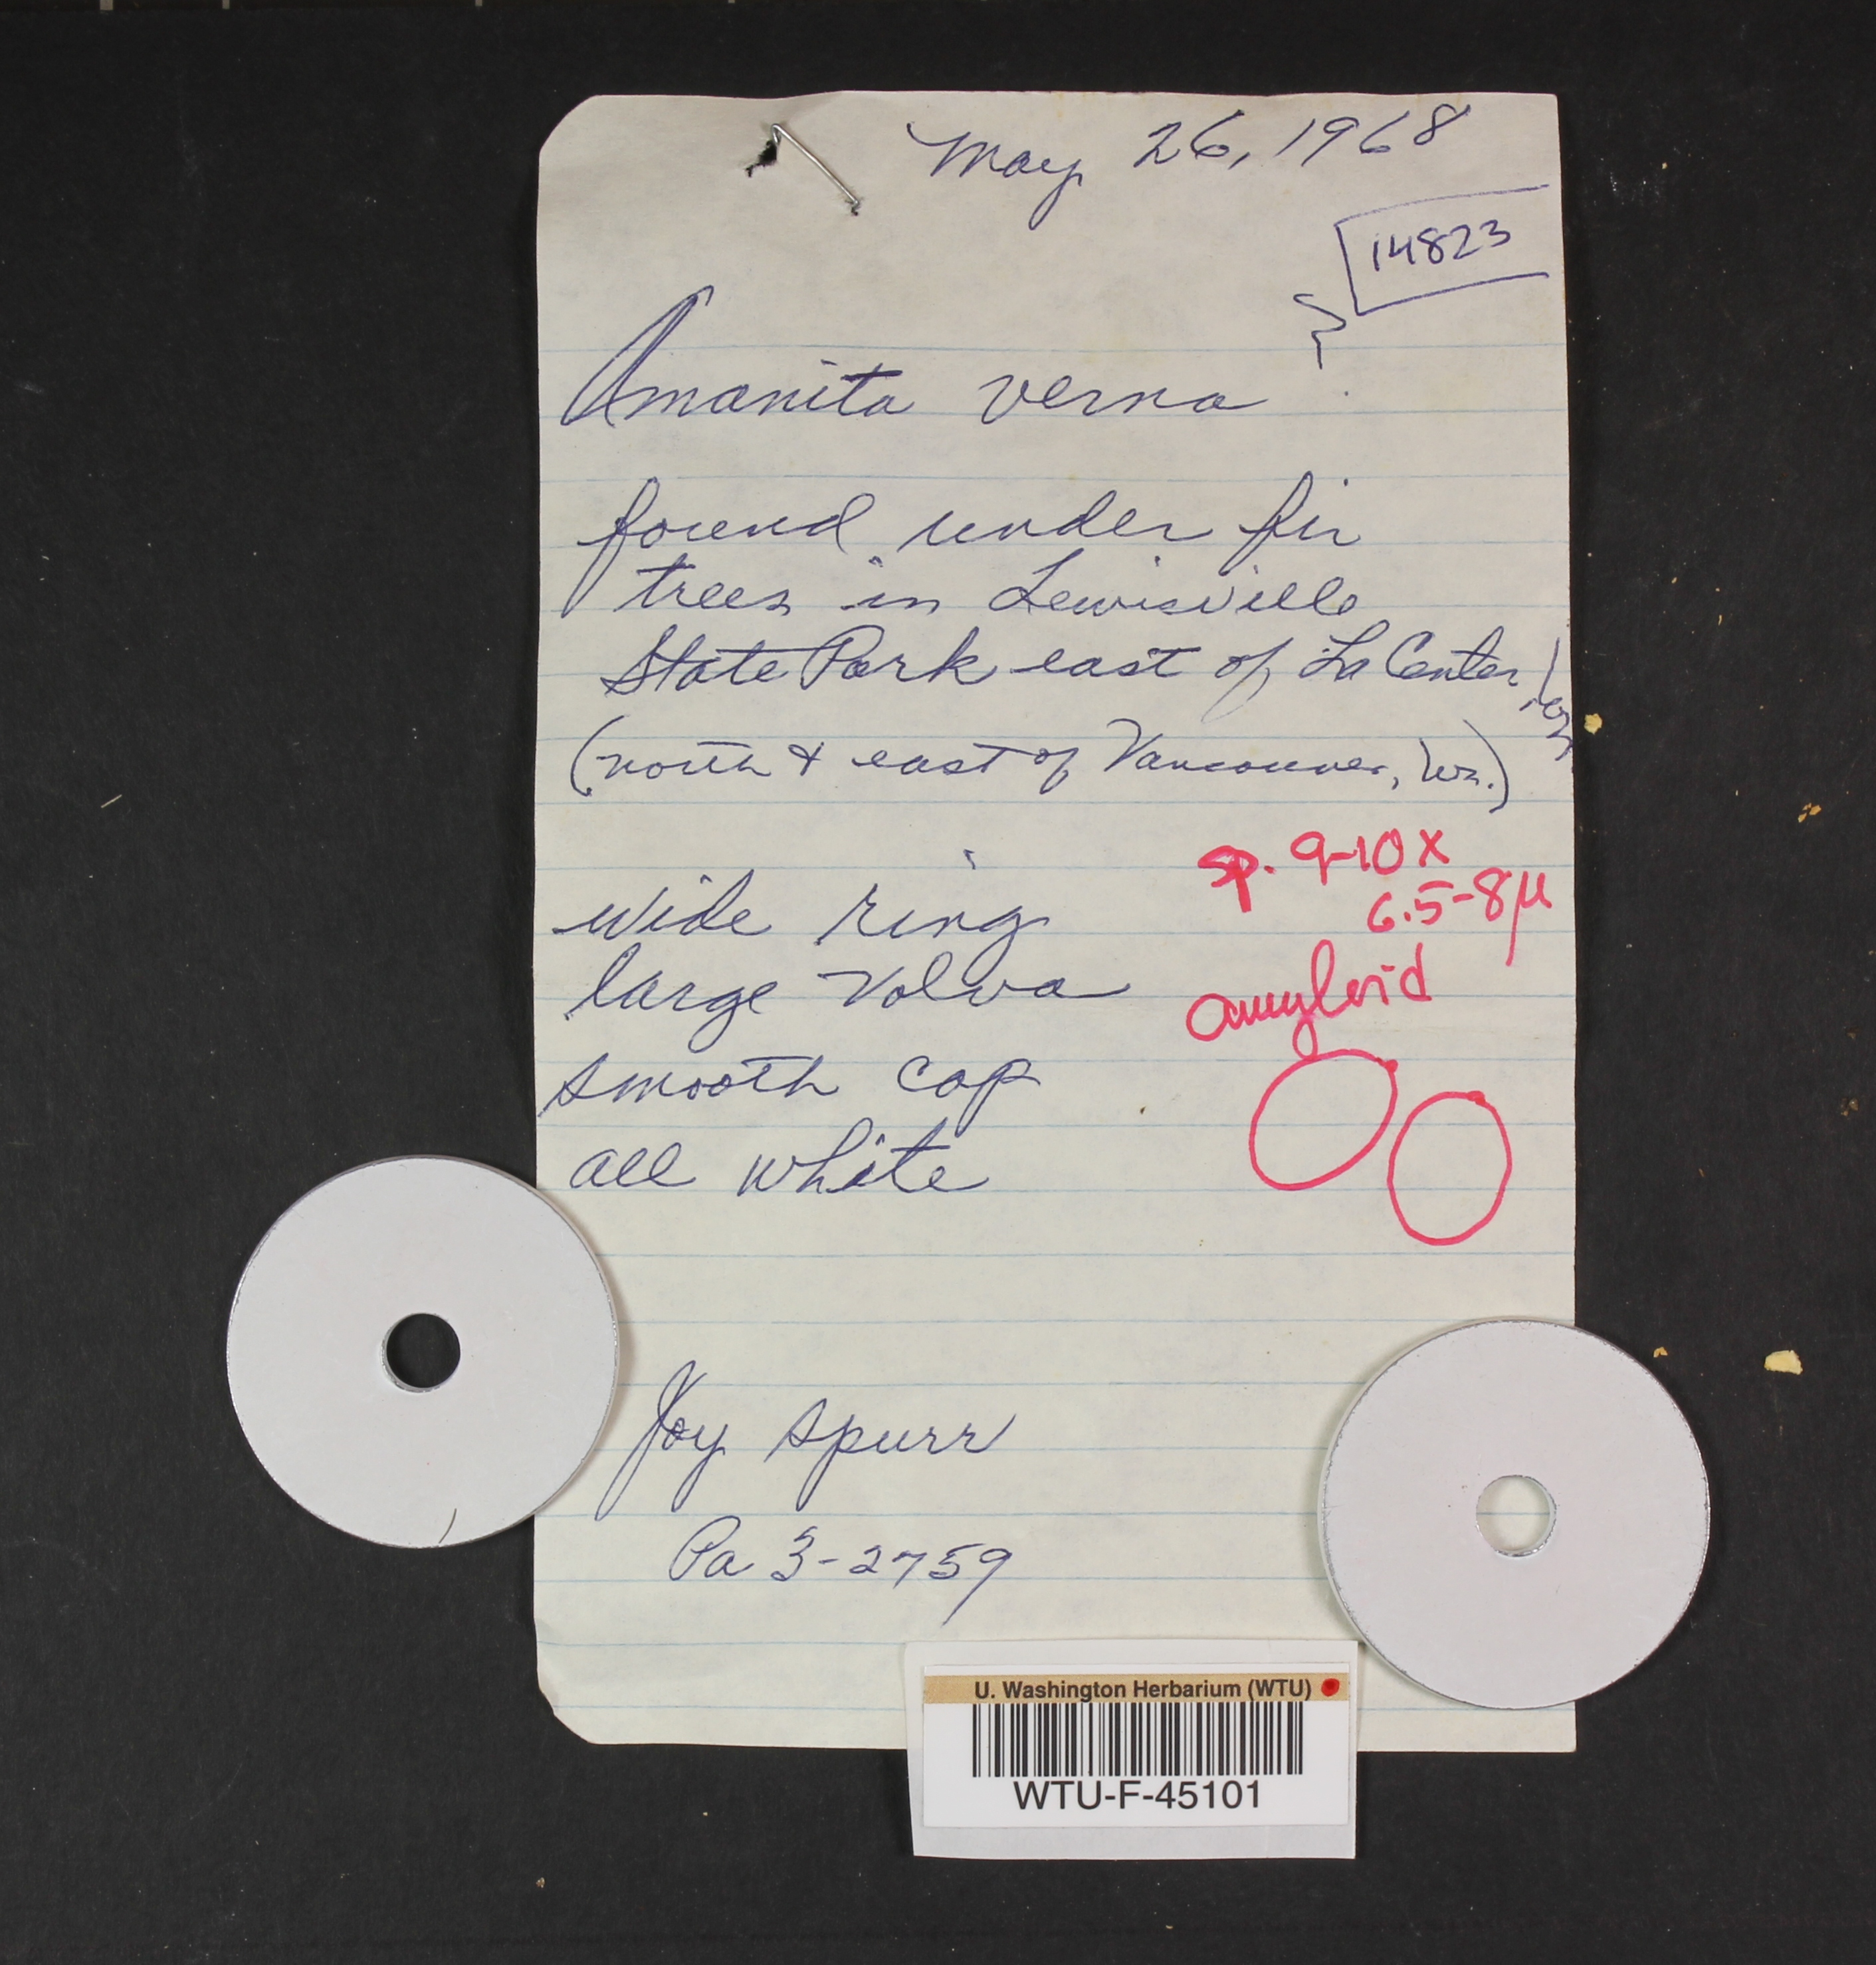 May 26, 1968
14823
Amanita verna ?
found under fir
trees in Lewisville
State Park east of La Center, Wn
(north & east of Vancouver, Wn.)
sp. 9-10 x
6.5-8 µ
wide ring
large volva
amyloid
smooth cap
all white
Joy Spurr
Pa 3-2759
U. Washington Herbarium (WTU)
WTU-F-45101